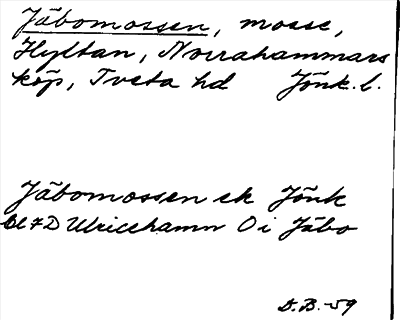 Jäbomossen, mosse,
Hyltan, Norrahammars
köp, Tveta hd Jönk. l.
Jäbomossen ek Jönk
bl 7D Ulricehamn O i Jäbo
D.B. -59